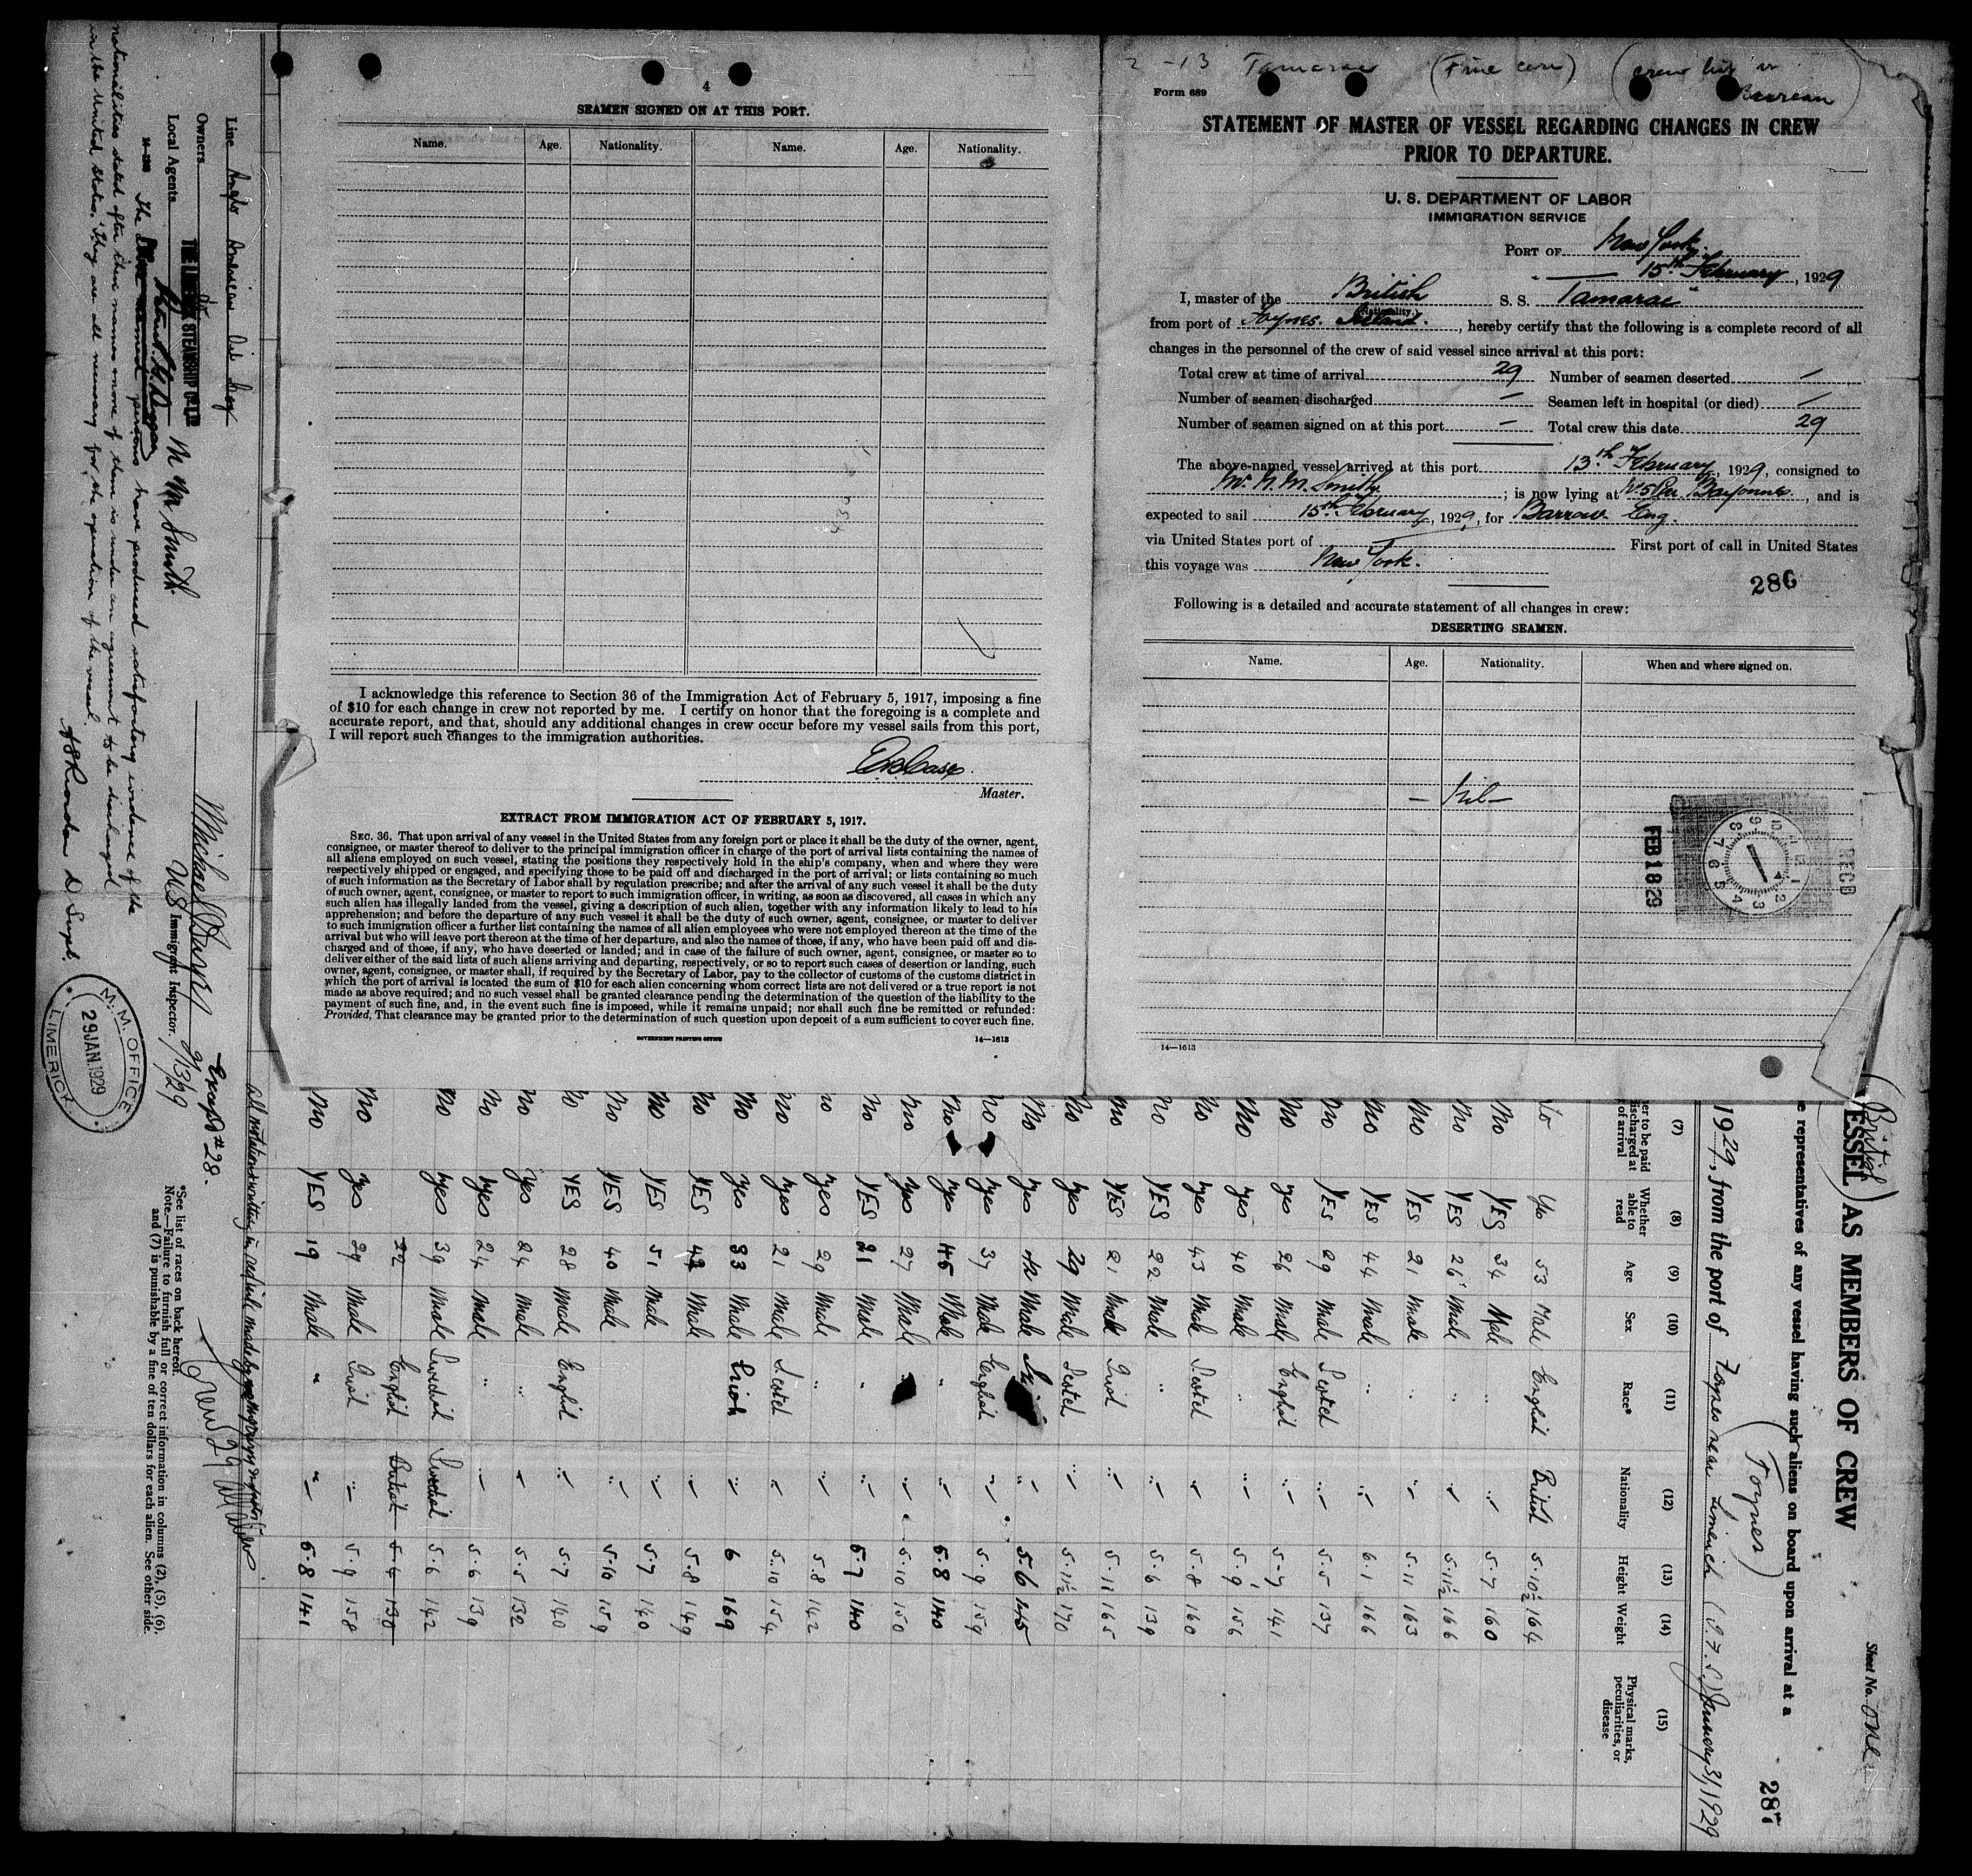 2-13 Tamarac (Fine case) (crew list in Bureau)
4
SEAMEN SIGNED ON AT THIS PORT.
Name. Age. Nationality. Name. Age. Nationality.
I acknowledge this reference to Section 36 of the Immigration Act of February 5, 1917, imposing a fine
of $10 for each change in crew not reported by me. I certify on honor that the foregoing is a complete and
accurate report, and that, should any additional changes in crew occur before my vessel sails from this port,
I will report such changes to the immigration authorities.
Master.
EXTRACT FROM IMMIGRATION ACT OF FEBRUARY 5, 1917.
SEC. 36. That upon arrival of any vessel in the United States from any foreign port or place it shall be the duty of the owner, agent,
consignee, or master thereof to deliver to the principal immigration officer in charge of the port of arrival lists containing the names of
all aliens employed on such vessel, stating the positions they respectively hold in the ship's company, when and where they were
respectively shipped or engaged, and specifying those to be paid off and discharged in the port of arrival; or lists containing so much
of such information as the Secretary of Labor shall by regulation prescribe; and after the arrival of any such vessel it shall be the duty
of such owner, agent, consignee, or master to report to such immigration officer, in writing, as soon as discovered, all cases in which any
such alien has illegally landed from the vessel, giving a description of such alien, together with any information likely to lead to his
apprehension; and before the departure of any such vessel it shall be the duty of such owner, agent, consignee, or master to deliver
to such immigration officer a further list containing the names of all alien employees who were not employed thereon at the time of the
arrival but who will leave port thereon at the time of her departure, and also the names of those, if any, who have been paid off and dis-
charged and of those, if any, who have deserted or landed; and in case of the failure of such owner, agent, consignee, or master so to
deliver either of the said lists of such aliens arriving and departing, respectively, or so to report such cases of desertion or landing, such
owner, agent, consignee, or master shall, if required by the Secretary of Labor, pay to the collector of customs of the customs district in
which the port of arrival is located the sum of $10 for each alien concerning whom correct lists are not delivered or a true report is not
made as above required; and no such vessel shall be granted clearance pending the determination of the question of the liability to the
payment of such fine, and, in the event such fine is imposed, while it remains unpaid; nor shall such fine be remitted or refunded:
Provided, That clearance may be granted prior to the determination of such question upon deposit of a sum sufficient to cover such fine.
GOVERNMENT PRINTING OFFICE 14—1613
Form 689
STATEMENT OF MASTER OF VESSEL REGARDING CHANGES IN CREW
PRIOR TO DEPARTURE.
U. S. DEPARTMENT OF LABOR
IMMIGRATION SERVICE
PORT OF New York
15th February, 1929
I, master of the British S. S. "Tamarac"
(Nationality.)
from port of Foynes. Ireland., hereby certify that the following is a complete record of all
changes in the personnel of the crew of said vessel since arrival at this port:
Total crew at time of arrival 29 Number of seamen deserted /
Number of seamen discharged — Seamen left in hospital (or died) /
Number of seamen signed on at this port — Total crew this date 29
The above-named vessel arrived at this port 13th February, 1929, consigned to
Mr. N. M. Smith; is now lying at No 5 Pier Bayonne, and is
expected to sail 15th February, 1929, for Barrow Eng.
via United States port of — First port of call in United States
this voyage was New York.
286
Following is a detailed and accurate statement of all changes in crew:
DESERTING SEAMEN.
Name. Age. Nationality. When and where signed on.
— Nil —
REC'D
FEB 18 29
14—1613
Sheet No. One
287
(British
ESSEL) AS MEMBERS OF CREW
e representatives of any vessel having such aliens on board upon arrival at a
(Foynes)
1929, from the port of Foynes near Limerick (I.F.S.) January 31 1929
(7) (8) (9) (10) (11) (12) (13) (14) (15)
er to be paid discharged at of arrival
Whether able to read
Age
Sex
Race*
Nationality
Height
Weight
Physical marks, peculiarities, or disease
No Yes 53 Male English British 5·10½ 164
No YES 34 Male " " 5·7 160
No YES 26 Male " " 5·11½ 166
No YES 21 Male " " 5·11 163
No YES 44 Male " " 6·1 166
No YES 29 Male Scotch " 5·5 137
No yes 26 Male English " 5·7 141
No yes 40 Male " " 5·9 156
No yes 43 Male Scotch " 5·8 160
No YES 22 Male " " 5·6 139
No YES 21 Male Irish " 5·11 165
No yes 29 Male Scotch " 5·11½ 170
No yes Male " 5·6 145
No yes 37 Male English " 5·9 159
No yes 45 Male " " 5·8 140
No yes 27 Male " " 5·10 150
No YES 21 Male " " 5·7 140
No yes 29 Male " " 5·8 142
No yes 21 Male Scotch " 5·10 154
No yes 33 Male Irish " 6 169
No YES 42 Male " 5·8 149
No YES 51 Male " 5·7 140
No YES 40 Male " 5·10 159
No YES 28 Male English " 5·7 140
No yes 24 Male " " 5·5 132
No yes 24 Male " " 5·6 139
No yes 39 Male Swedish Swedish 5·6 142
22 English British 5·4 130
No yes 29 Male Irish " 5·9 158
No YES 19 Male " " 5·8 141
*See list of races on back hereof.
Note.—Failure to furnish full or correct information in columns (2), (5), (6),
and (7) is punishable by a fine of ten dollars for each alien. See other side.
Line Anglo American Oil Coy
Owners
THE LIMERICK STEAMSHIP CO. LTD
Local Agents N M Smith
Except #28.
U S Immigrant Inspector. 2/13/29
The persons have produced satisfactory evidence of the
nationalities stated after their names & none of them is under an agreement to be discharged
in the United States. They are all necessary for the operation of the vessel.
D Supt.
M. M. OFFICE
29 JAN. 1929
LIMERICK